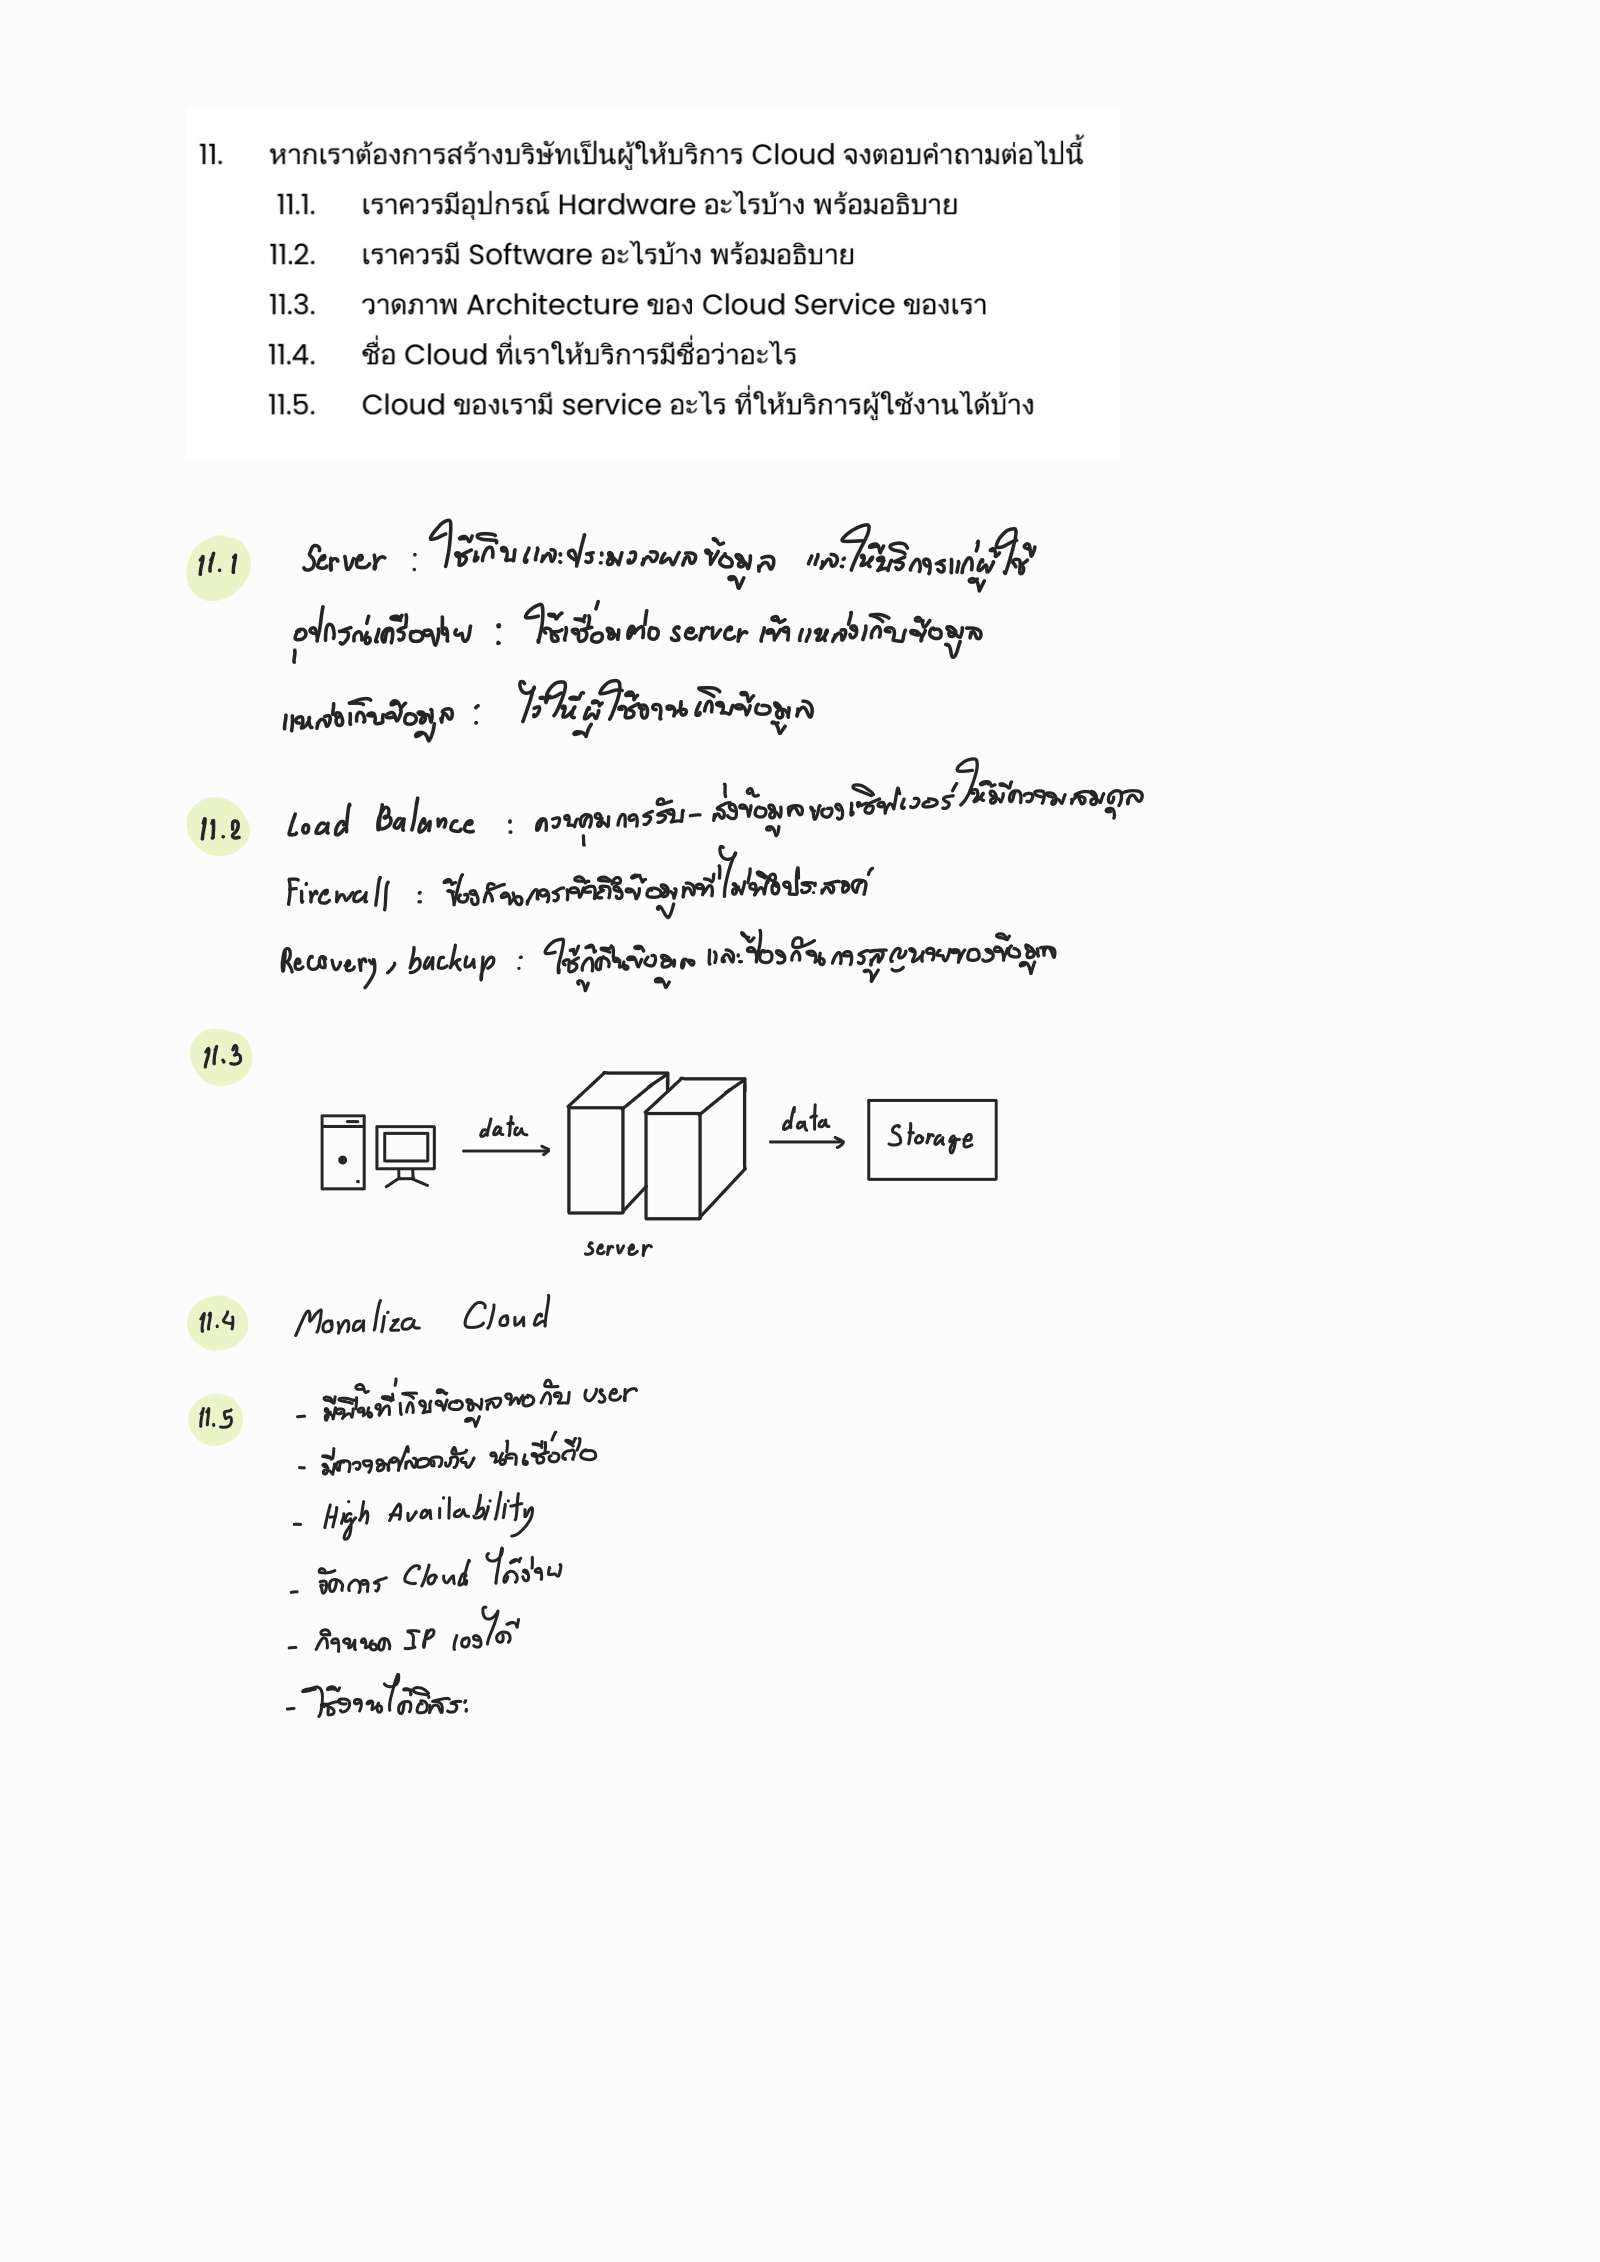 11. หากเราต้องการสร้างบริษัทเป็นผู้ให้บริการ Cloud จงตอบคำถามต่อไปนี้
11.1. เราควรมีอุปกรณ์ Hardware อะไรบ้าง พร้อมอธิบาย
11.2. เราควรมี Software อะไรบ้าง พร้อมอธิบาย
11.3. วาดภาพ Architecture ของ Cloud Service ของเรา
11.4. ชื่อ Cloud ที่เราให้บริการมีชื่อว่าอะไร
11.5. Cloud ของเรามี service อะไร ที่ให้บริการผู้ใช้งานได้บ้าง
11.1 Server : ใช้เก็บและประมวลผลข้อมูล และให้บริการแก่ผู้ใช้
อุปกรณ์เครือข่าย : ใช้เชื่อมต่อ server เข้าแหล่งเก็บข้อมูล
แหล่งเก็บข้อมูล : ไว้ให้ผู้ใช้งานเก็บข้อมูล
11.2 Load Balance : ควบคุมการรับ - ส่งข้อมูลของเซิฟเวอร์ให้มีความสมดุล
Firewall : ป้องกันการเข้าถึงข้อมูลที่ไม่พึงประสงค์
Recovery, backup : ใช้กู้คืนข้อมูล และป้องกันการสูญหายของข้อมูล
11.3
data
data
Storage
server
11.4 Monaliza Cloud
11.5 - มีพื้นที่เก็บข้อมูลพอกับ user
- มีความปลอดภัย น่าเชื่อถือ
- High Availability
- จัดการ Cloud ได้ง่าย
- กำหนด IP เองได้
- ใช้งานได้อิสระ